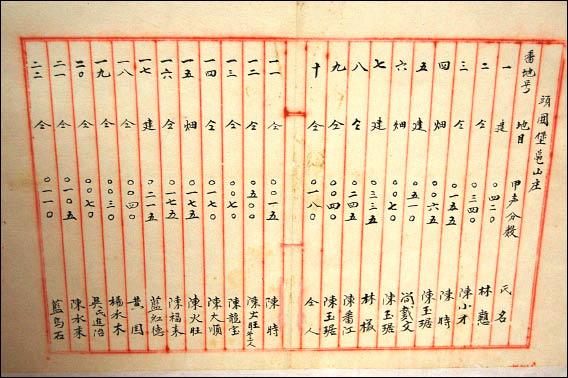 頭圍堡龜山庄
番地号 地目 甲声分数 氏名
一 建 〇四二〇 林戇
二 仝 〇三四〇 陳小才
三 仝 〇一五五 陳時
四 畑 〇〇六五 陳玉琚
五 建 〇五一〇 戴文
六 畑 〇〇七〇 陳玉琚
七 建 〇三三五 林
八 仝 〇二四五 陳番江
九 仝 〇〇四〇 陳玉琚
十 仝 〇一八〇 仝人
一一 仝 〇〇一五 陳時
一二 仝 〇五〇〇 陳
一三 仝 〇〇七〇 陳龍宝
一四 仝 〇一七〇 陳大順
一五 畑 陳火旺
一六 仝 〇一七五 陳福来
一七 建 〇二一五 藍紅德
一八 仝 〇〇四〇 黃
一九 仝 〇〇三〇 楊水木
二〇 仝 〇〇七〇 吳氏進治
二一 仝 〇一〇五 陳水来
二二 仝 〇一一〇 藍烏石